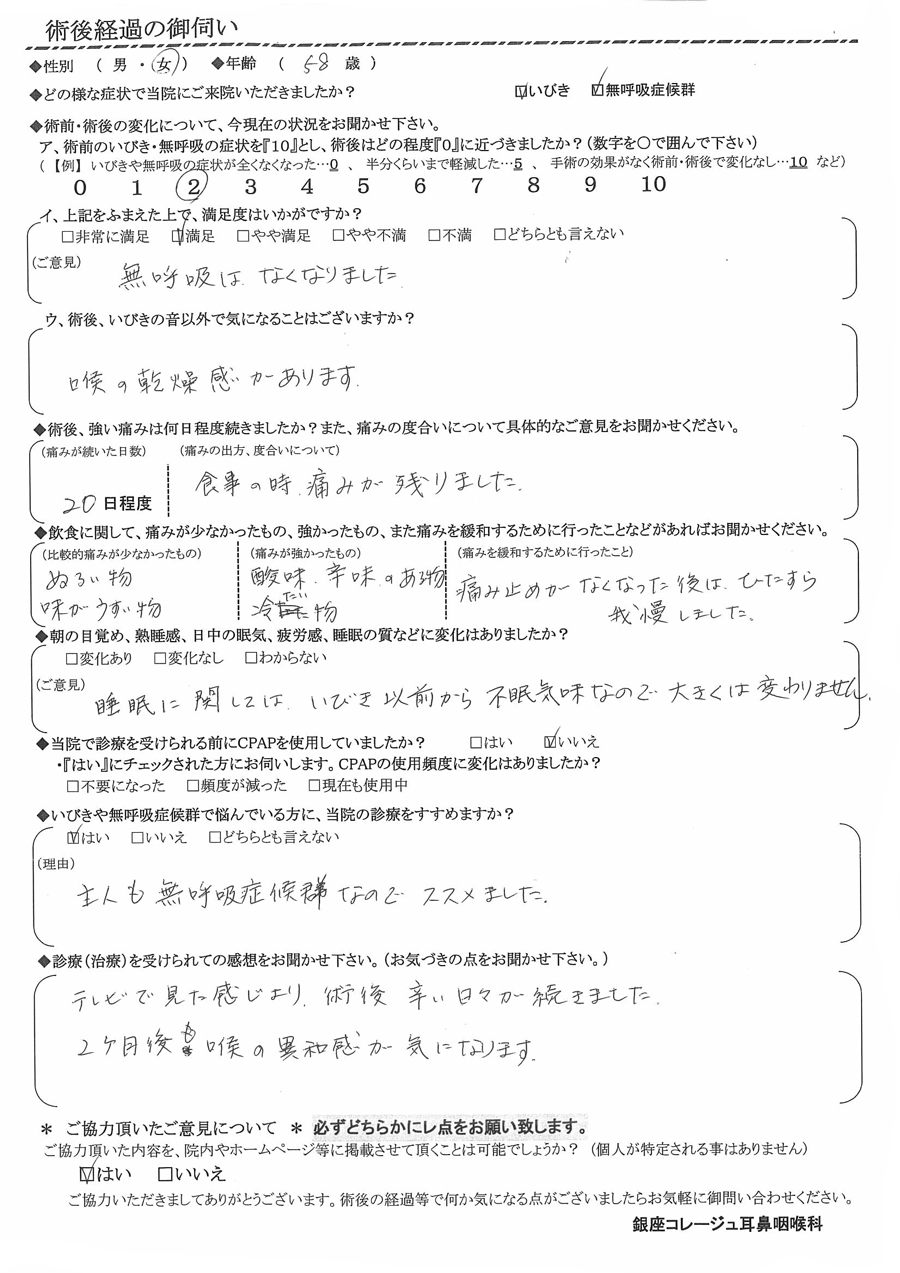 術後経過の御伺い
◆性別 ( 男 ・ 女 ) ◆年齢 ( 58 歳 )
◆どの様な症状で当院にご来院いただきましたか? ☑いびき ☑無呼吸症候群
◆術前・術後の変化について、今現在の状況をお聞かせ下さい。
ア、術前のいびき・無呼吸の症状を『10』とし、術後はどの程度『0』に近づきましたか?(数字を〇で囲んで下さい)
(【例】いびきや無呼吸の症状が全くなくなった…0 、 半分くらいまで軽減した…5 、 手術の効果がなく術前・術後で変化なし…10 など)
0 1 2 3 4 5 6 7 8 9 10
イ、上記をふまえた上で、満足度はいかがですか?
□非常に満足 ☑満足 □やや満足 □やや不満 □不満 □どちらとも言えない
(ご意見)
無呼吸は なくなりました
ウ、術後、いびきの音以外で気になることはございますか?
喉の乾燥感があります.
◆術後、強い痛みは何日程度続きましたか?また、痛みの度合いについて具体的なご意見をお聞かせください。
(痛みが続いた日数) (痛みの出方、度合いについて)
食事の時.痛みが残りました.
20 日程度
◆飲食に関して、痛みが少なかったもの、強かったもの、また痛みを緩和するために行ったことなどがあればお聞かせください。
(比較的痛みが少なかったもの) (痛みが強かったもの) (痛みを緩和するために行ったこと)
ぬるい物 酸味.辛味のある物 痛み止めがなくなった後は.ひたすら
味がうすい物 冷たい物 我慢しました.
◆朝の目覚め、熟睡感、日中の眠気、疲労感、睡眠の質などに変化はありましたか?
□変化あり □変化なし □わからない
(ご意見)
睡眠に関しては.いびき以前から不眠気味なので大きくは変わりません.
◆当院で診療を受けられる前にCPAPを使用していましたか? □はい ☑いいえ
・『はい』にチェックされた方にお伺いします。CPAPの使用頻度に変化はありましたか?
□不要になった □頻度が減った □現在も使用中
◆いびきや無呼吸症候群で悩んでいる方に、当院の診療をすすめますか?
☑はい □いいえ □どちらとも言えない
(理由)
主人も無呼吸症候群なのでススメました.
◆診療(治療)を受けられての感想をお聞かせ下さい。(お気づきの点をお聞かせ下さい。)
テレビで見た感じより.術後 辛い日々が続きました.
2ヶ月後も喉の異和感が気になります.
* ご協力頂いたご意見について * 必ずどちらかにレ点をお願い致します。
ご協力頂いた内容を、院内やホームページ等に掲載させて頂くことは可能でしょうか? (個人が特定される事はありません)
☑はい □いいえ
ご協力いただきましてありがとうございます。術後の経過等で何か気になる点がございましたらお気軽に御問い合わせください。
銀座コレージュ耳鼻咽喉科